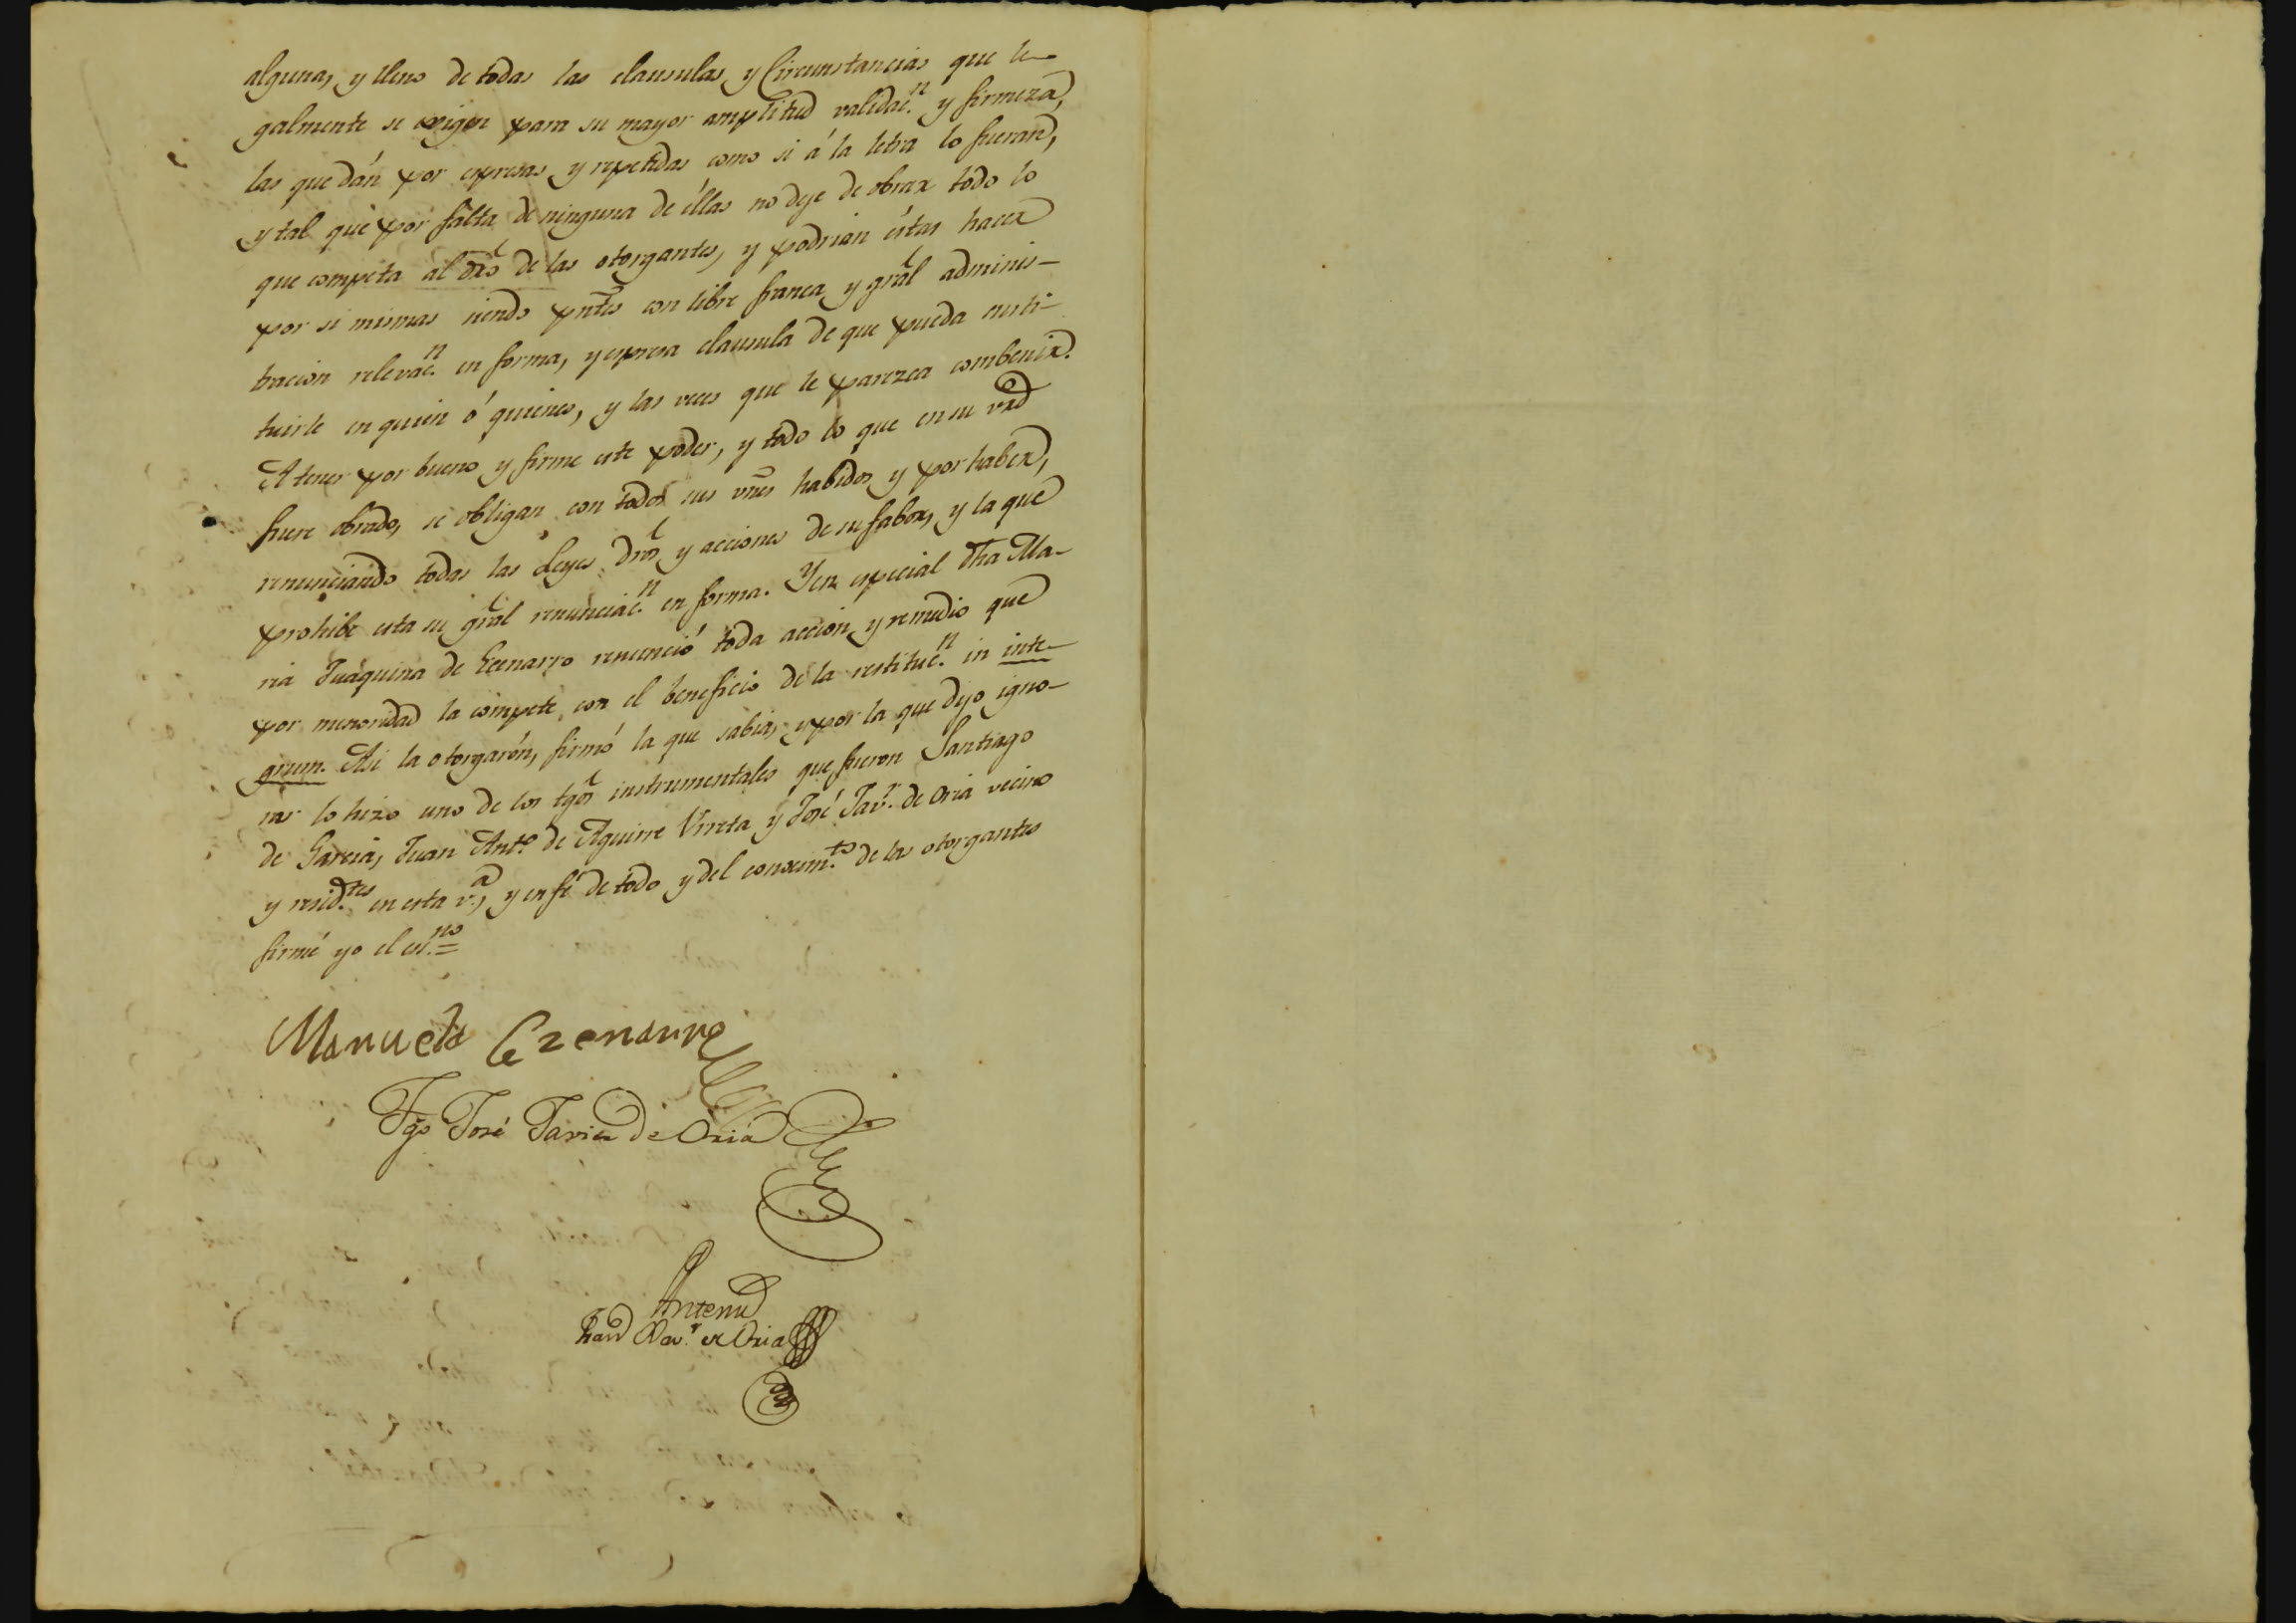 alguna, y lleno de todas las clausulas y Circunstancias que le-
galmente se exigen para su mayor amplitud validac.n y firmeza,
las que dán por expresas y repetidas como si á la letra lo fueran,
y tal que por falta de ninguna de éllas no deje de obrar todo lo
que competa al dro de las otorgantes, y podrian éstas hacer
por si mismas siendo pntes con libre franca y gral adminis-
tracion relevac.n en forma, y expresa clausula de que pueda susti-
tuirle en quien ó quienes, y las veces que le parezca combenir.
A tener por bueno y firme este poder, y todo lo que en su vrd
fuere obrado, se obligan con todos sus vnes habidos y por haber,
renunciando todas las Leyes dros y acciones de su fabor, y la que
prohibe esta su gral renunciac.n en forma. Y en especial dha Ma-
ria Juaquina de Ecenarro renunció toda accion y remedio que
por menoridad la compete con el beneficio de la restituc.n in inte-
grum. Asi la otorgarón, firmó la que sabia, y por la que dijo igno-
rar lo hizo uno de los tgos instrumentales que fueron Santiago
de Garcia, Juan Ant.o de Aguirre Urreta y José Jav.r de Oria vecino
y resid.tes en esta v.a, y en fé de todo y del conocim.to de las otorgantes
firmé yo el es.no=
Manuela Ezenarro
Tgo José Javier de Oria
Antemi
Xav.r de Oria